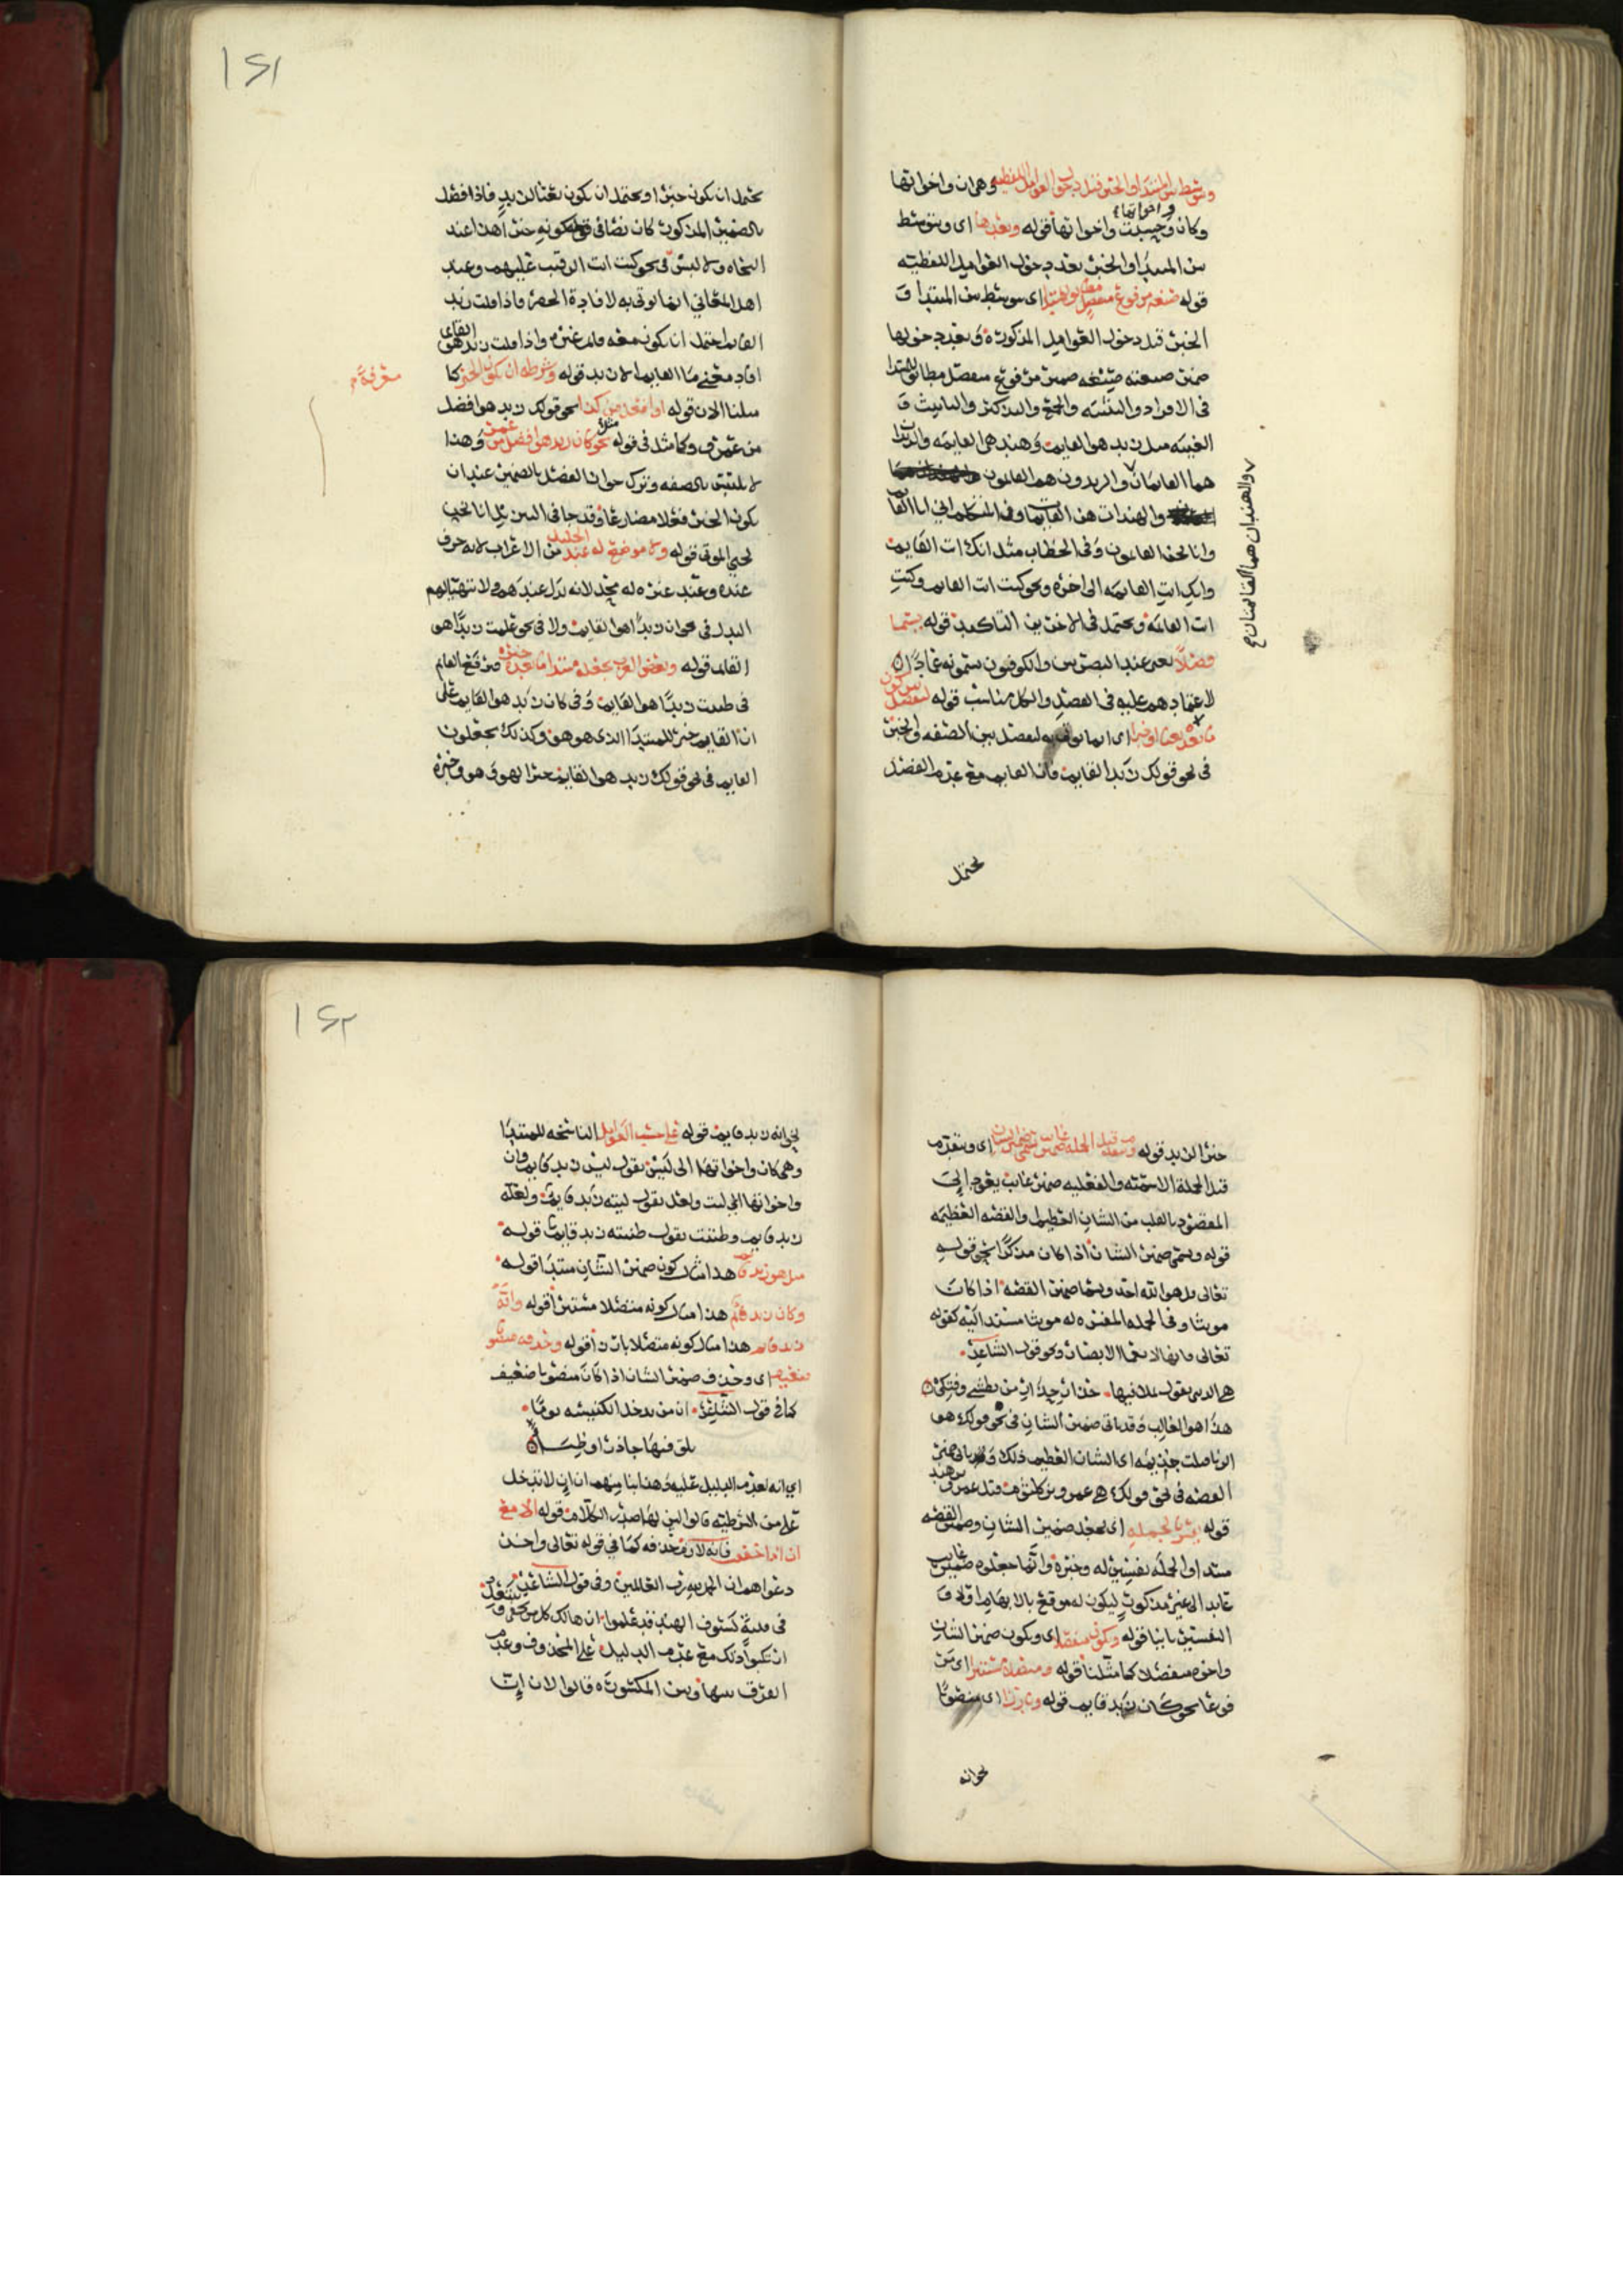 ويتوسط بين المبتدا والخبر قبل دخول العوامل اللفظيه وهي ان واخواتها
وكان وحسبت واخواتها قوله وبعدها اي ويتوسط
واخواتها
بين المبتدا والخبر بعد دخول العوامل اللفظيه
قوله صيغه مرفوع منفصل مطابق للمبتدا اي يتوسط بين المبتدا و
الخبر قبل دخول العوامل المذكوره وبعد دخولها
ضمير صيغته صيغه ضمير مرفوع منفصل مطابق للمبتدا
في الافراد والتثنيه والجمع والتذكير والتانيث و
الغيبه مثل زيد هو القايم وهند هي القايمه والزيدان
هما القايمان والزيدون هم القايمون
والهندات هن القايمات وفي المتكلم اني انا القايم
وانا نحن القايمون وفي الخطاب مثل انك انت القايم
وانك انت القايمه الى اخره ونحو كنت انت القايم وكنت
انت القايمه ويحتمل في الاخيرين التاكيد قوله يسما
فصلا يعني عند البصريين والكوفيون يسمونه عمادا
لاعتمادهم عليه في الفصل والكل مناسب قوله ليفصل بين كون
ما بعده نعتا او خبرا اي انما يوتى به ليفصل بين الصفه والخبر
في نحو قولك زيد القايم فان القايم مع عدم الفصل
والهندان هما القايمتان صح
يحتمل
١٤١
يحتمل ان يكون خبرا ويحتمل ان يكون نعتا لزيد فاذا فصل
بالضمير المذكور كان نصا في كونه خبرا هذا عند
النحاه ولا لبس في نحو كنت انت الرقيب عليهم وعند
اهل المعاني انما يوتى به لافادة الحصر فاذا قلت زيد
القايم احتمل ان يكون معه قايم غيره واذا قلت زيد هو القايم
افاد معنى ما القايم الا زيد قوله وشرطه ان يكون الخبر كما
معرفة
مثلنا الان قوله او افعل من كذا نحو قولك زيد هو افضل
من عمرو وكما مثل في قوله مثل كان زيد هو افضل من عمرو وهذا
لا يلتبس بالصفه وترك جواز الفصل بالضمير عند ان
يكون الخبر فعلا مضارعا وقد جا في انا نحن
نحيي الموتى قوله ولا موضع له عند الخليل من الاعراب لانه حرف
عنده وعند غيره له محل لانه بدل عندهم ولا يتهيا لهم
البدل في نحو ان زيدا هو القايم ولا في نحو علمت زيدا هو
القايم قوله وبعض العرب يجعله مبتدا ما بعده خبره فيرفع القايم
في ظننت زيدا هو القايم وفي كان زيد هو القايم على
ان القايم خبر للمبتدا الذي هو هو وكذلك يجعلون
القايم في نحو قولك زيد هو القايم خبرا لهو وهو وخبره
خبر الزيد قوله ويتقدم قبل الجمله ضمير غايب يسمى ضمير الشان اي ويتقدم
قبل الجملة الاسميه والفعليه ضمير غايب يعود الى
المقصود بالقلب من الشان العظيم والقصه العظيمه
قوله ويسمى ضمير الشان اذا كان مذكرا نحو قوله
تعالى قل هو الله احد ويسما ضمير القصه اذا كان
مونثا وفي الجمله المفسره له مونثا مسند اليه كقوله
تعالى فانها لا تعمى الابصار ونحو قول الشاعر
هي الدنيا تقول بملا فيها حذار حذار من بطشي وفتكي
هذا هو الغالب وقد ياتي ضمير الشان في نحو قولك هو
اي الشان العظيم ذلك وياتي ضمير
القصه في نحو قولك هي عمرو بن كلثوم قتل عمرو بن هند
قوله يفسر بالجمله اي بعد ضمير الشان وضمير القصه
مبتدا والجمله تفسير له وخبره وانما جعلوه ضمير غايب
عايد الى غير مذكور ليكون له موقع بالابهام اولا و
التفسير ثانيا قوله ويكون منفصلا اي ويكون ضمير الشان
واخوه منفصلا كما مثلنا قوله ومتصلا مستترا اي مر
فوعا نحو كان زيد قايم قوله وبارزا اي منصوبا
نحو انه
١٤٢
نحو انه زيد قايم قوله على حسب العوامل الناسخه للمبتدا
وهي كان واخواتها الى ليس تقول ليس زيد قايم وان
واخواتها الى ليت ولعل تقول ليته زيد قايم ولعله
زيد قايم وظننت تقول ظننته زيد قايم قوله
مثل هو زيد قايم هذا مثال كون ضمير الشان مبتدا قوله
وكان زيد قايم هذا مثال كونه متصلا مستترا قوله وانه
زيد قايم هذا مثال كونه متصلا بارزا قوله وحذفه منصوبا
ضعيف اي وحذف ضمير الشان اذا كان منصوبا ضعيف
كما في قول الشاعر ان من يدخل الكنيسه يوما
يلق فيها جاذرا وظبا
اي انه لعدم الدليل عليه وهذا بنا منهم ان ان لا تدخل
على من الشرطيه قالوا لان لها صدر الكلام قوله الا مع
ان اذا خفف فانه لازم حذفه كما في قوله تعالى واخر
دعواهم ان الحمد لله رب العالمين وفي قول الشاعر
في فتية كسيوف الهند قد علموا ان هالك كل من يحفى وينتعل
ارتكبوا ذلك مع عدم الدليل على المحذوف وعدم
الفرق بينها وبين المكسوره قالوا لان ان